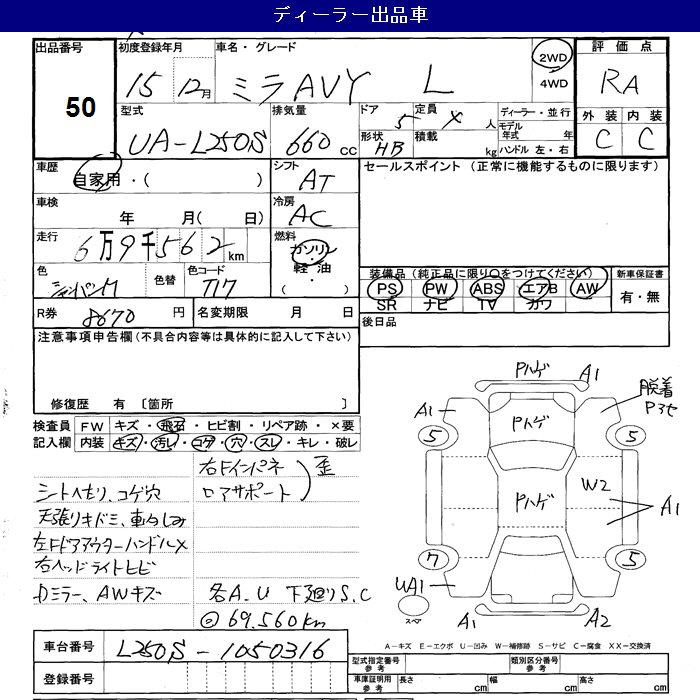 ディーラー出品車
出品番号 50
初度登録年月 15年 12月
車名・グレード ミラAVY L
2WD
4WD
評価点 RA
外装 C 内装 C
型式 UA-L250S
排気量 660 cc
ドア 5 定員 人
形状 HB 積載 kg
ディーラー・並行
モデル年式 年
ハンドル 左・右
車歴 自家用・( )
シフト AT
セールスポイント (正常に機能するものに限ります)
車検 年 月( 日)
冷房 AC
走行 6万9千562 km
燃料 ガソリン・軽油・( )
色 シャンパンM 色替 色コード T17
装備品 (純正品に限り○をつけてください)
PS PW ABS エアB AW
SR ナビ TV カワ
新車保証書 有・無
R券 8670 円 名変期限 月 日
後日品
注意事項申告欄 (不具合内容等は具体的に記入して下さい)
修復歴 有 〔箇所 〕
検査員記入欄
FW キズ・飛石・ヒビ割・リペア跡・×要
内装 キズ・汚レ・コゲ・穴・スレ・キレ・破レ
右Fインパネ
ロアサポート 歪
シートヘタリ、コゲ穴
天張りキドミ、車内しみ
左Fドアアウターハンドル×
右ヘッドライトヒビ
Dミラー、AWキズ
各A.U 下廻りS.C
@69.560km
Pハゲ A1
脱着
A1 Pハゲ
5 5
W2
Pハゲ A1
7 5
UA1
スペア A1 A2
A-キズ E-エクボ U-凹み W-補修跡 S-サビ C-腐食 XX-交換済
車台番号 L250S-1050316
登録番号
型式指定番号 参考 類別区分番号 参考
車庫証明用 参考 長さ cm 幅 cm 高さ cm